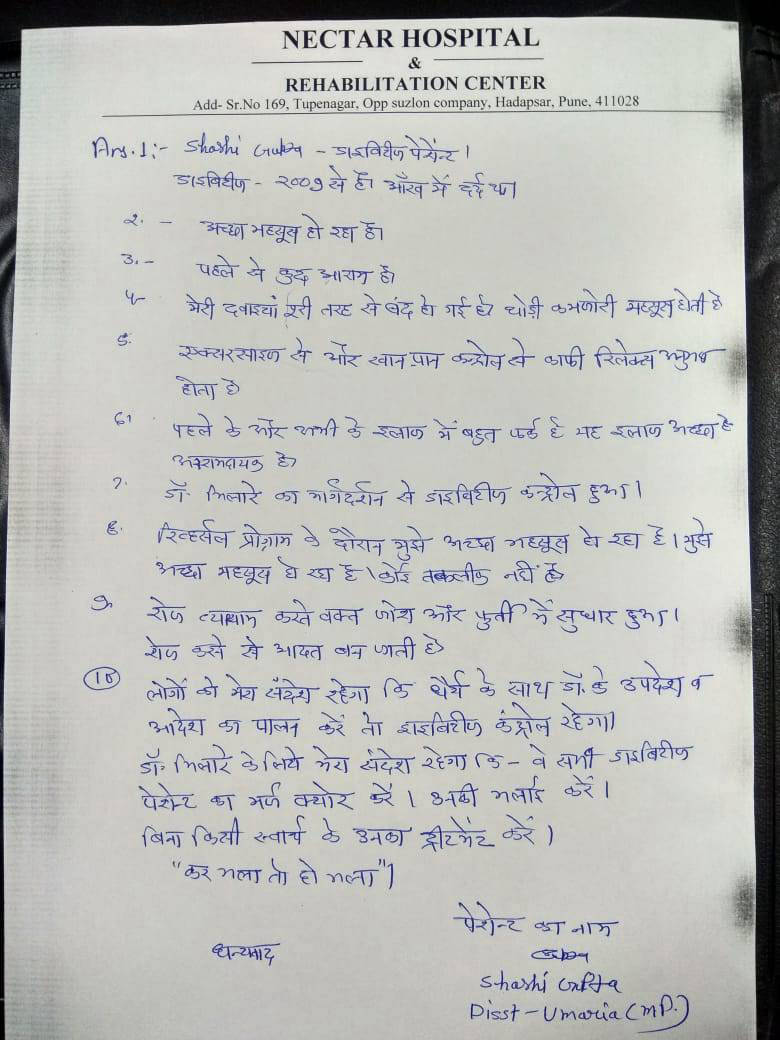 NECTAR HOSPITAL
&
REHABILITATION CENTER
Add- Sr.No 169, Tupenagar, Opp suzlon company, Hadapsar, Pune, 411028
Ans.1:- Shashi Gupta - डाइबिटीज पेशेन्ट।
डाइबिटीज - २००9 से है। आँख में दर्द था।
२. - अच्छा महसूस हो रहा है।
3.- पहले से कुछ आराम है।
4- मेरी दवाइयां पूरी तरह से बंद हो गई है। थोड़ी कमजोरी महसूस होती है
5. एक्सरसाइज से और खान पान कन्ट्रोल से काफी रिलेक्स अनुभव
होता है
6. पहले के और अभी के इलाज में बहुत फर्क है यह इलाज अच्छा है
आरामदायक है।
7. डॉ. भिलारे का मार्गदर्शन से डाइबिटीज कन्ट्रोल हुआ।
8. रिव्हर्सल प्रोग्राम के दौरान मुझे अच्छा महसूस हो रहा है। मुझे
अच्छा महसूस हो रहा है। कोई तकलीफ नहीं है।
9. रोज व्यायाम करते वक्त जोश और फुर्ती में सुधार हुआ।
रोज करने से आदत बन जाती है
10 लोगों को मेरा संदेश रहेगा कि धैर्य के साथ डॉ. के उपदेश व
आदेश का पालन करें तो डाइबिटीज कंट्रोल रहेगा।
डॉ. भिलारे के लिये मेरा संदेश रहेगा कि - वे सभी डाइबिटीज
पेशेन्ट का मर्ज क्योर करें। उनकी भलाई करें।
बिना किसी स्वार्थ के उनका ट्रीटमेंट करें।
"कर भला तो हो भला"।
पेशेन्ट का नाम
धन्यवाद
Shashi Gupta
Disst - Umaria (M.P.)